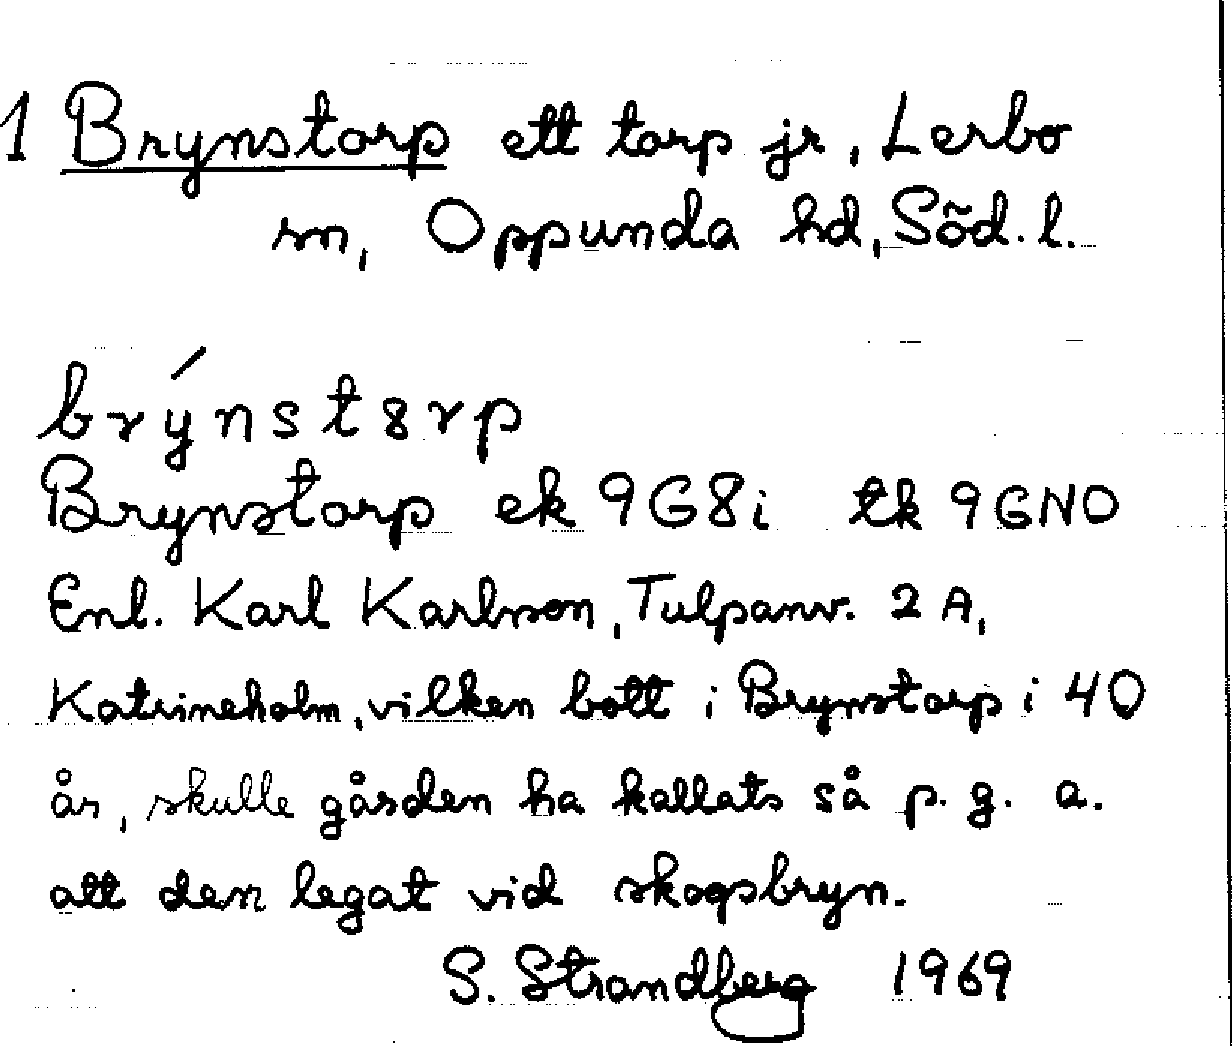 1 Brynstorp ett torp jr, Lerbo
sn, Oppunda hd, Söd. l.
brýnst8rp
Brynstorp ek 9G8i tk 9GNO
Enl. Karl Karlsson, Tulpanv. 2 A,
Katrineholm, vilken bott i Brynstorp i 40
år, skulle gården ha kallats så p. g. a.
att den legat vid skogsbryn.
S. Strandberg 1969